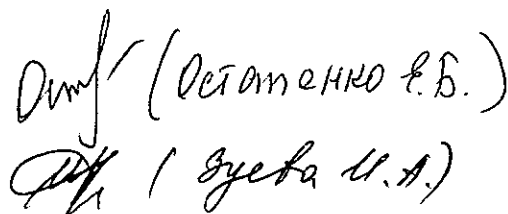 (Остапенко Е.Б.)
(Зуева И.А.)